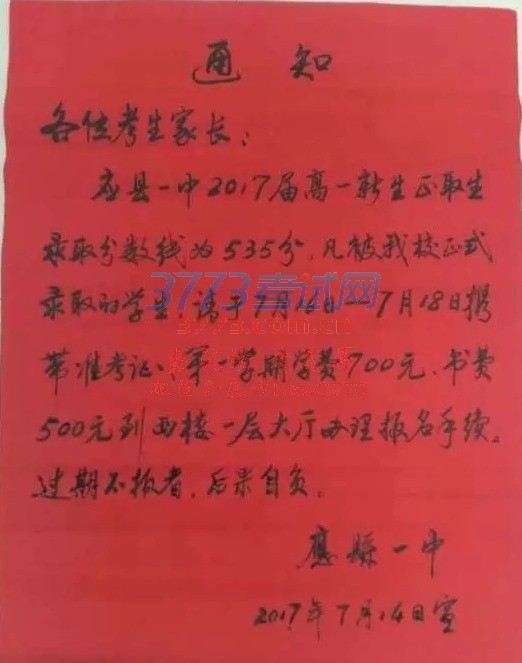 通知
各位考生家长：
应县一中2017届高一新生正取生
录取分数线为535分，凡被我校正式
录取的学生，请于7月16日—7月18日携
带准考证、第一学期学费700元、书费
500元到西楼一层大厅办理报名手续。
过期不报者，后果自负。
應縣一中
2017年7月14日宣
3773考试网